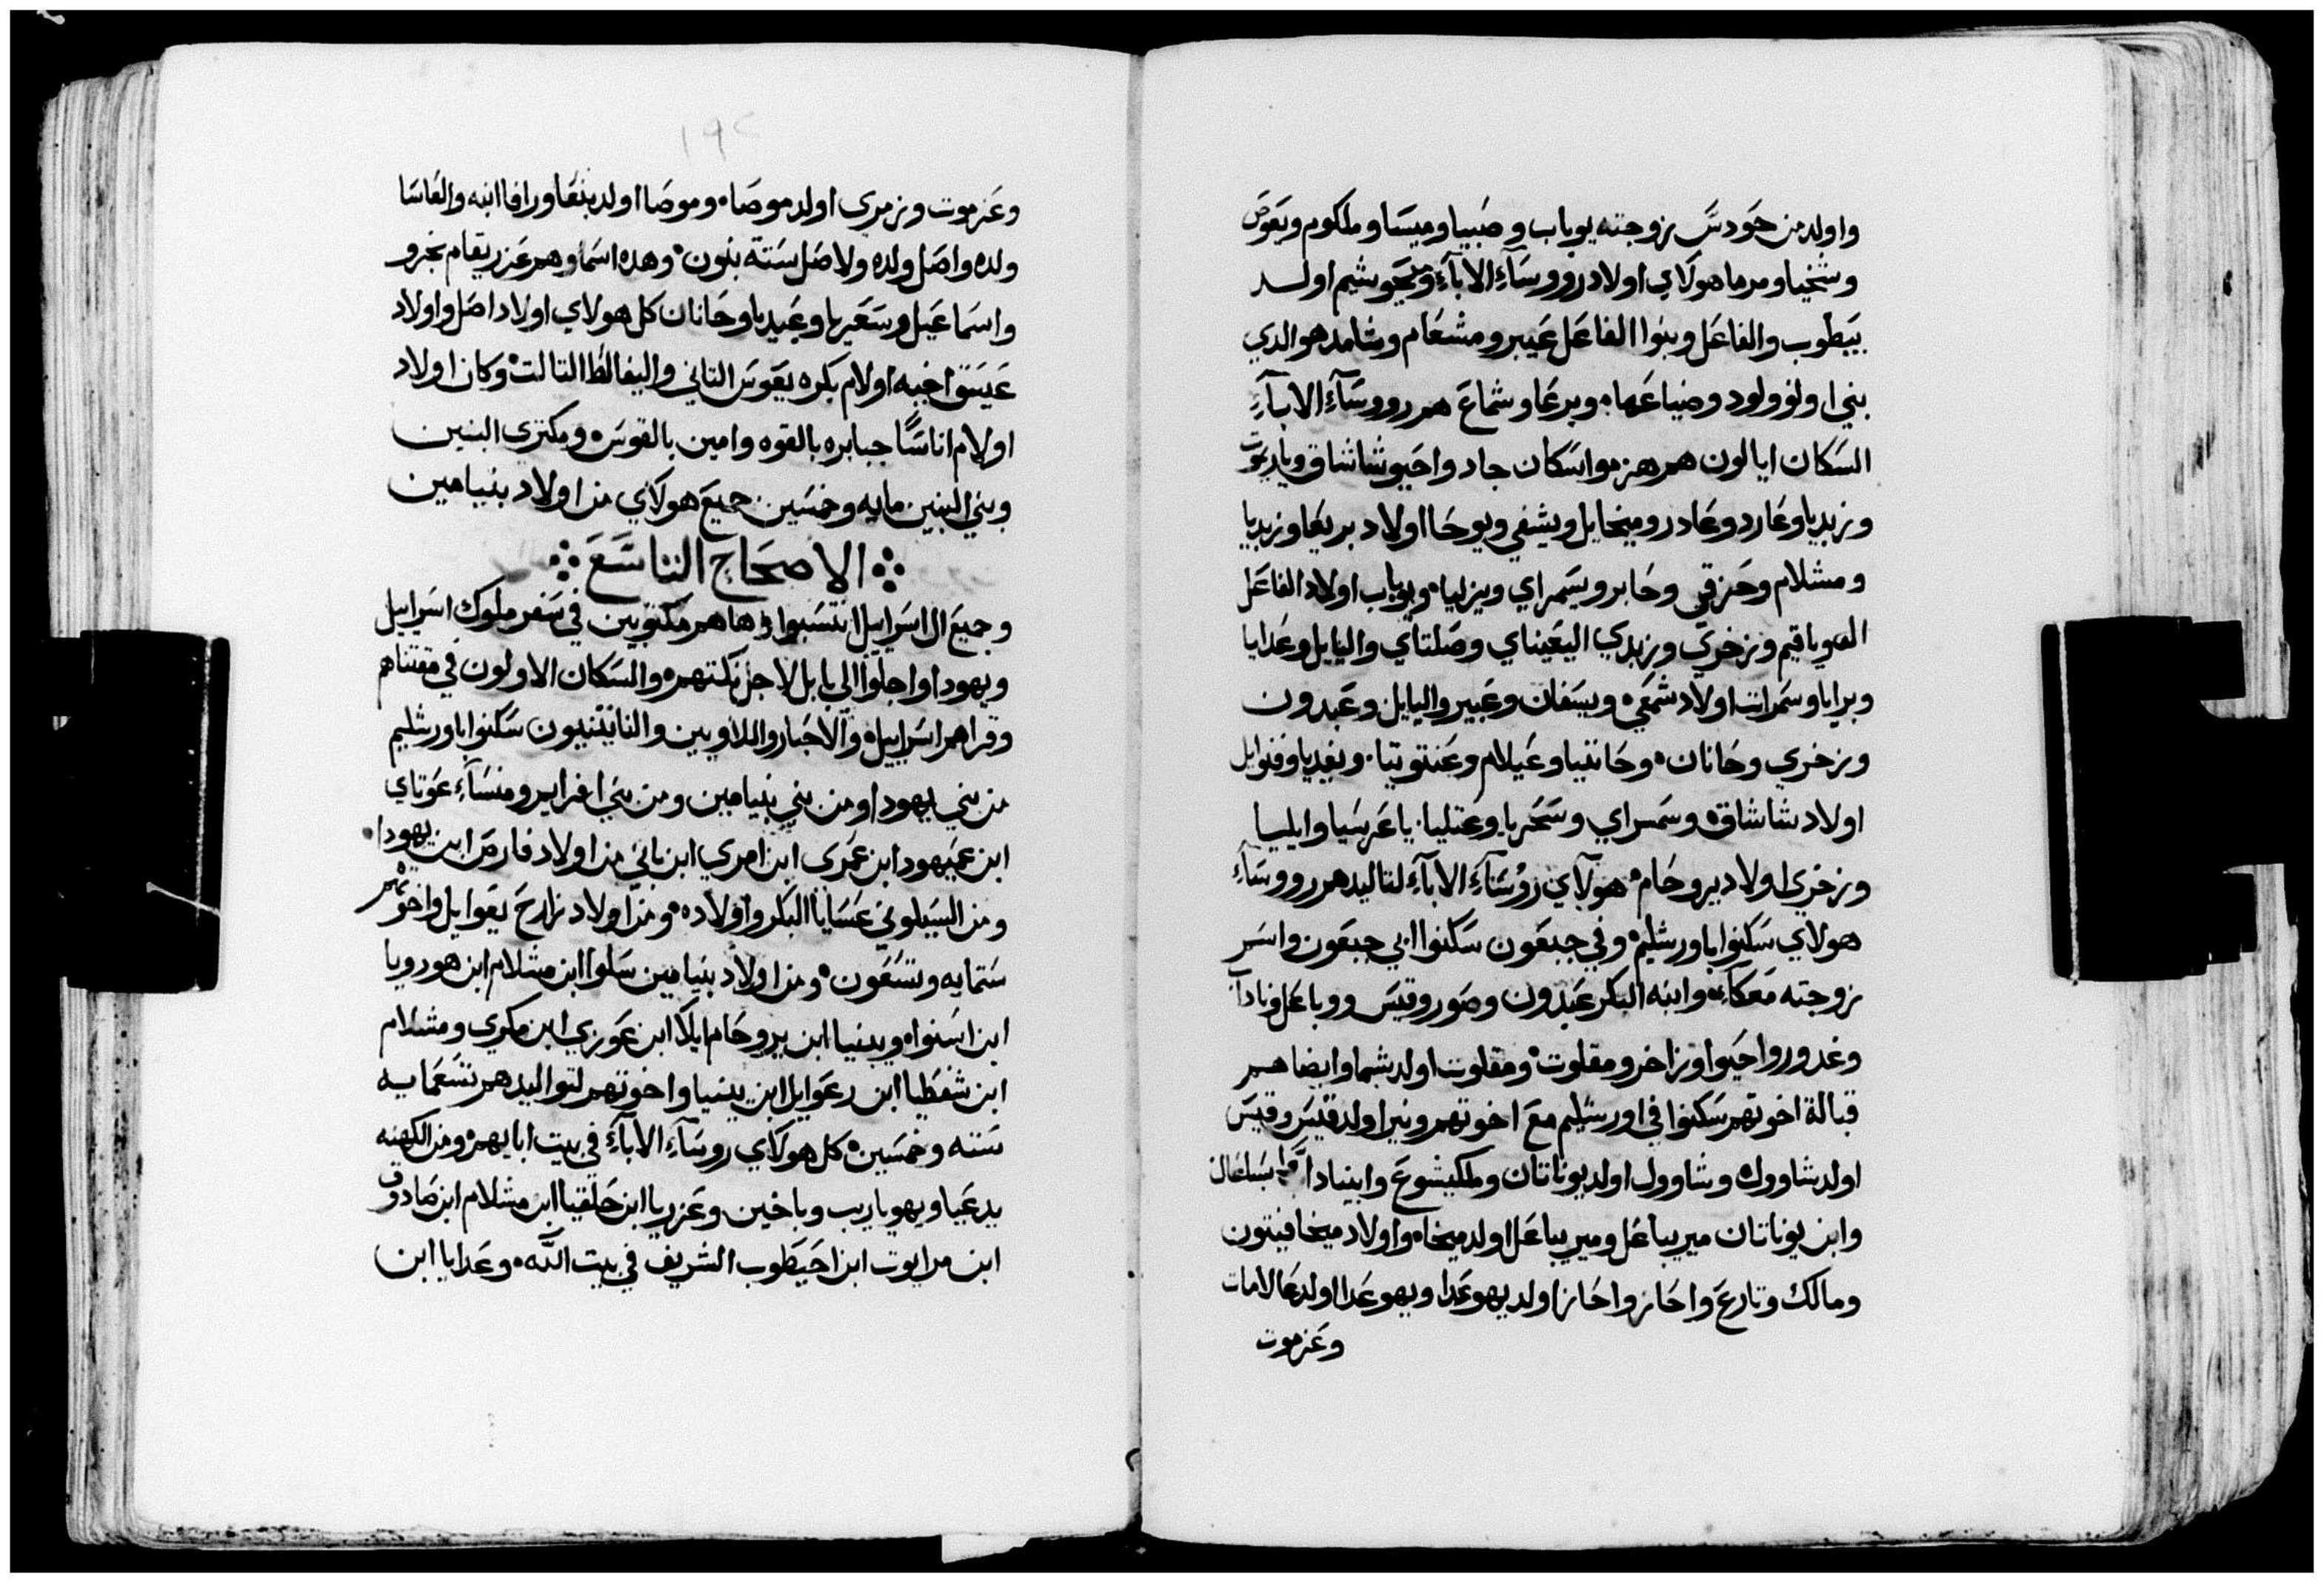 واولد من حودس زوجته يوباب وضبيا وميسا وملكوم ويعوص
وشخيا ومرما هولاي اولاد رووسآء الابآء ومحوشيم اولد
بيطوب والفاعل وبنوا الفاعل عيبر ومشعام وشامد هو الدي
بني اونو ولود وضياعها، وبرعا وشماع هم رووسآء الابآء
السكان ايالون هم هزموا سكان جاد واحيو شاشاق وياريموت
وزبديا وعارد وعادر وميخايل ويشفي ويوحا اولاد بريعا وزبديا
ومشلام وحزقي وحابر ويسمراي ويزليا، ويوباب اولاد الفاعل
وياقيم وزخري وزبدي اليعيناي وصلتاي واليايل وعدايا
وبرايا وسمرات اولاد شمعي، ويسفان وعيبر واليايل وعبدون
وزخري وحانان، وحاننيا وعيلام وعنتوتيا، ويفديا وفنوايل
اولاد شاشاق، وسمسراي وسحريا وعتليا، ياعرسيا وايليا
وزخري اولاد يروحام، هولآي روسآء الابآء لتاليدهم رووسآء
هولاي سكنوا باورشليم، وفي جبعون سكنوا ابي جبعون واسم
زوجته معكاء، وابنه البكر عبدون وصور وقيس وباعل وناداب
وغدور واحيوا وزاخر ومقلوت، ومقلوت اولد شما وايضا هم
قبالة اخوتهم سكنوا في اورشليم مع اخوتهم ونير اولد قيس وقيس
اولد شاوول، وشاوول اولد يوناتان وملكيشوع وابيناداب
وابن يوناتان ميريباعل وميريباعل اولد ميخا، واولاد ميخا فيتون
ومالك وتارع واحاز واحاز اولد يهوعدا ويهوعدا اولد عالامات
وعزموت
١٩٢
وعزموت وزمري اولد موصا، وموصا اولد بنعا ورافا ابنه والعاسا
ولده واصل ولده ولاصل ستة بنون، وهده اسماوهم عزريقام بخرو
واسماعيل وسعريا وعبيديا وحانان كل هولاي اولاد اصل واولاد
عيسق اخيه اولام بكره يعوس التاني واليفالط التالت، وكان اولاد
اولام اناسًا جبابره بالقوه وامين بالقوس، ومكتري البنين
وبني البنين مايه وخمسين جميع هولاي من اولاد بنيامين
الاصحاح التاسع
وجميع ال اسراييل انتسبوا، وها هم مكتوبين في سفر ملوك اسراييل
ويهودا واجلوا الي بابل لاجل نكتهم، والسكان الاولون في مقتناهم
وقراهم اسراييل، والاحبار واللاويين والناتينيون سكنوا باورشليم
من بني يهودا ومن بني بنيامين ومن بني افرايم ومنسآء عوتاي
ابن عميهود ابن عمري ابن امري ابن باني من اولاد فارص ابن يهودا،
ومن السيلوني عسايا البكر واولاده، ومن اولاد زارح يعوايل واخوتهم
ستمايه وتسعون، ومن اولاد بنيامين سلوا ابن مشلام ابن هورويا
ابن اسنواه ويبنيا ابن يروحام ايلا ابن عوزي ابن مكري ومشلام
ابن شفطيا ابن رعوايل ابن يبنيا واخوتهم لتواليدهم تسعمايه
سته وخمسين، كل هولاي روسآء الابآء في بيت ابايهم، ومن الكهنه
يدعيا ويهوياريب وياخين وعزريا ابن حلقيا ابن مشلام ابن صادوق
ابن مرايوت ابن احيطوب الشريف في بيت الله، وعدايا ابن